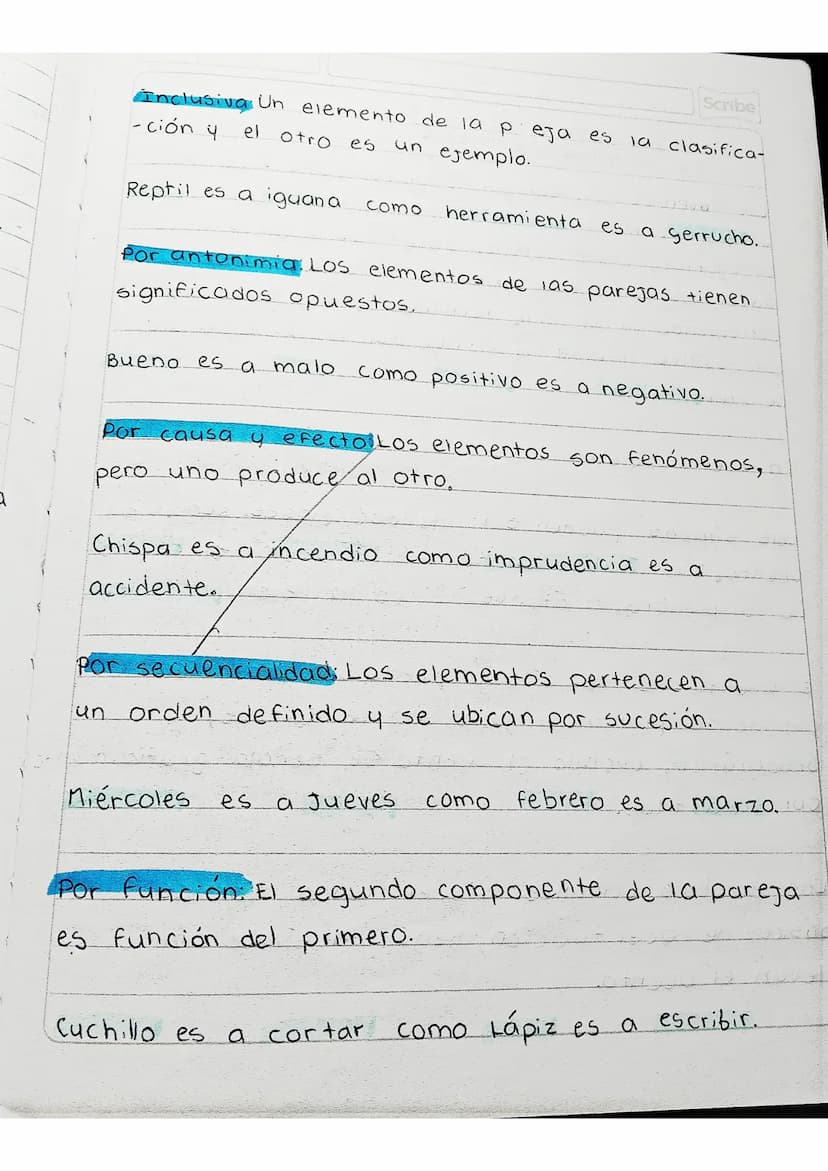 Scribe
Inclusiva Un elemento de la p eja es la clasifica-
-ción y el otro es un ejemplo.
Reptil es a iguana como herramienta es a gerrucho.
Por antonimia. Los elementos de las parejas tienen
significados opuestos.
Bueno es a malo como positivo es a negativo.
Por causa y efecto: Los elementos son fenómenos,
pero uno produce al otro.
Chispa es a incendio como imprudencia es a
accidente.
Por secuencialidad: Los elementos pertenecen a
un orden definido y se ubican por sucesión.
Miércoles es a Jueves como febrero es a marzo.
Por función: El segundo componente de la pareja
es función del primero.
Cuchillo es a cortar como Lápiz es a escribir.